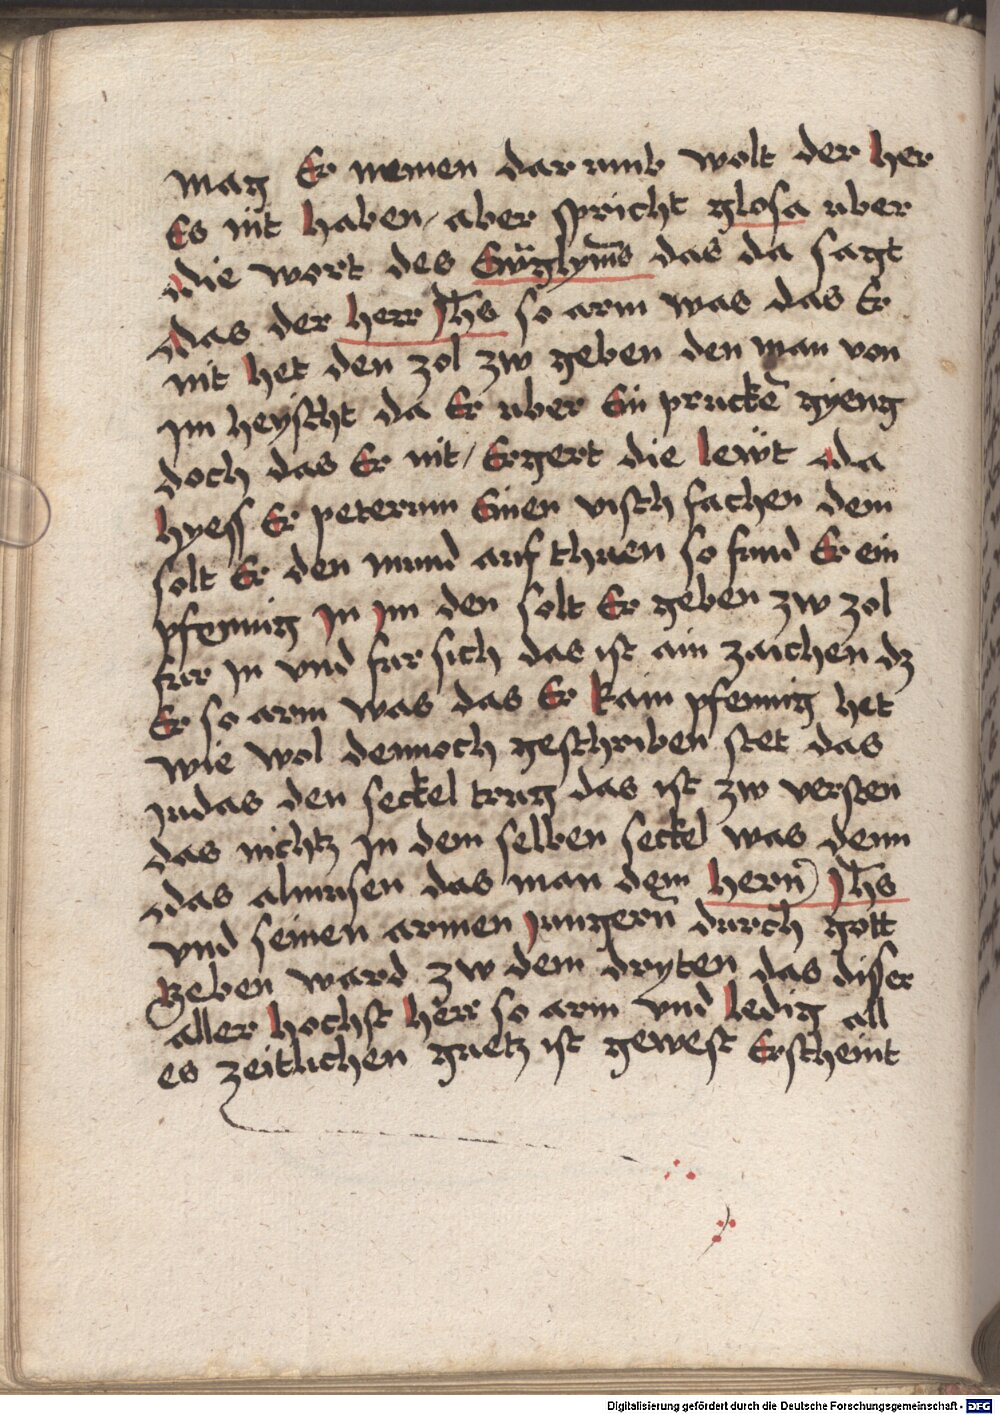 mag Er meinen dar umb wolt der her
Es nit haben / aber spricht glosa uber
die wort des Ewglyms das da sagt
das der herr Jhs so arm was das Er
nit het den zol zw geben den man von
im heyscht da Er uber Ein prucke gyeng
doch das Er nit / Ergert die lewt da
hyess Er peterum Einen visch fachen dem
solt Er den mund auf thuen so fund Er ein
pfennig In im den solt Er geben zw zol
fur in vnd fur sich das ist ain zaichen dz
Er so arm was das Er kain pfennig het
wie wol dennoch geschriben stet das
iudas den seckel trug das ist zw versten
das nichtz in dem selben seckel was denn
das almusen das man dem hern Jhs
vnd seinen armen Jungern durch gott
geben ward zw dem dryten das disser
aller hochst herr so arm vnd ledig all
es zeitlichen guetz ist gewest Erscheint
Digitalisierung gefördert durch die Deutsche Forschungsgemeinschaft - DFG